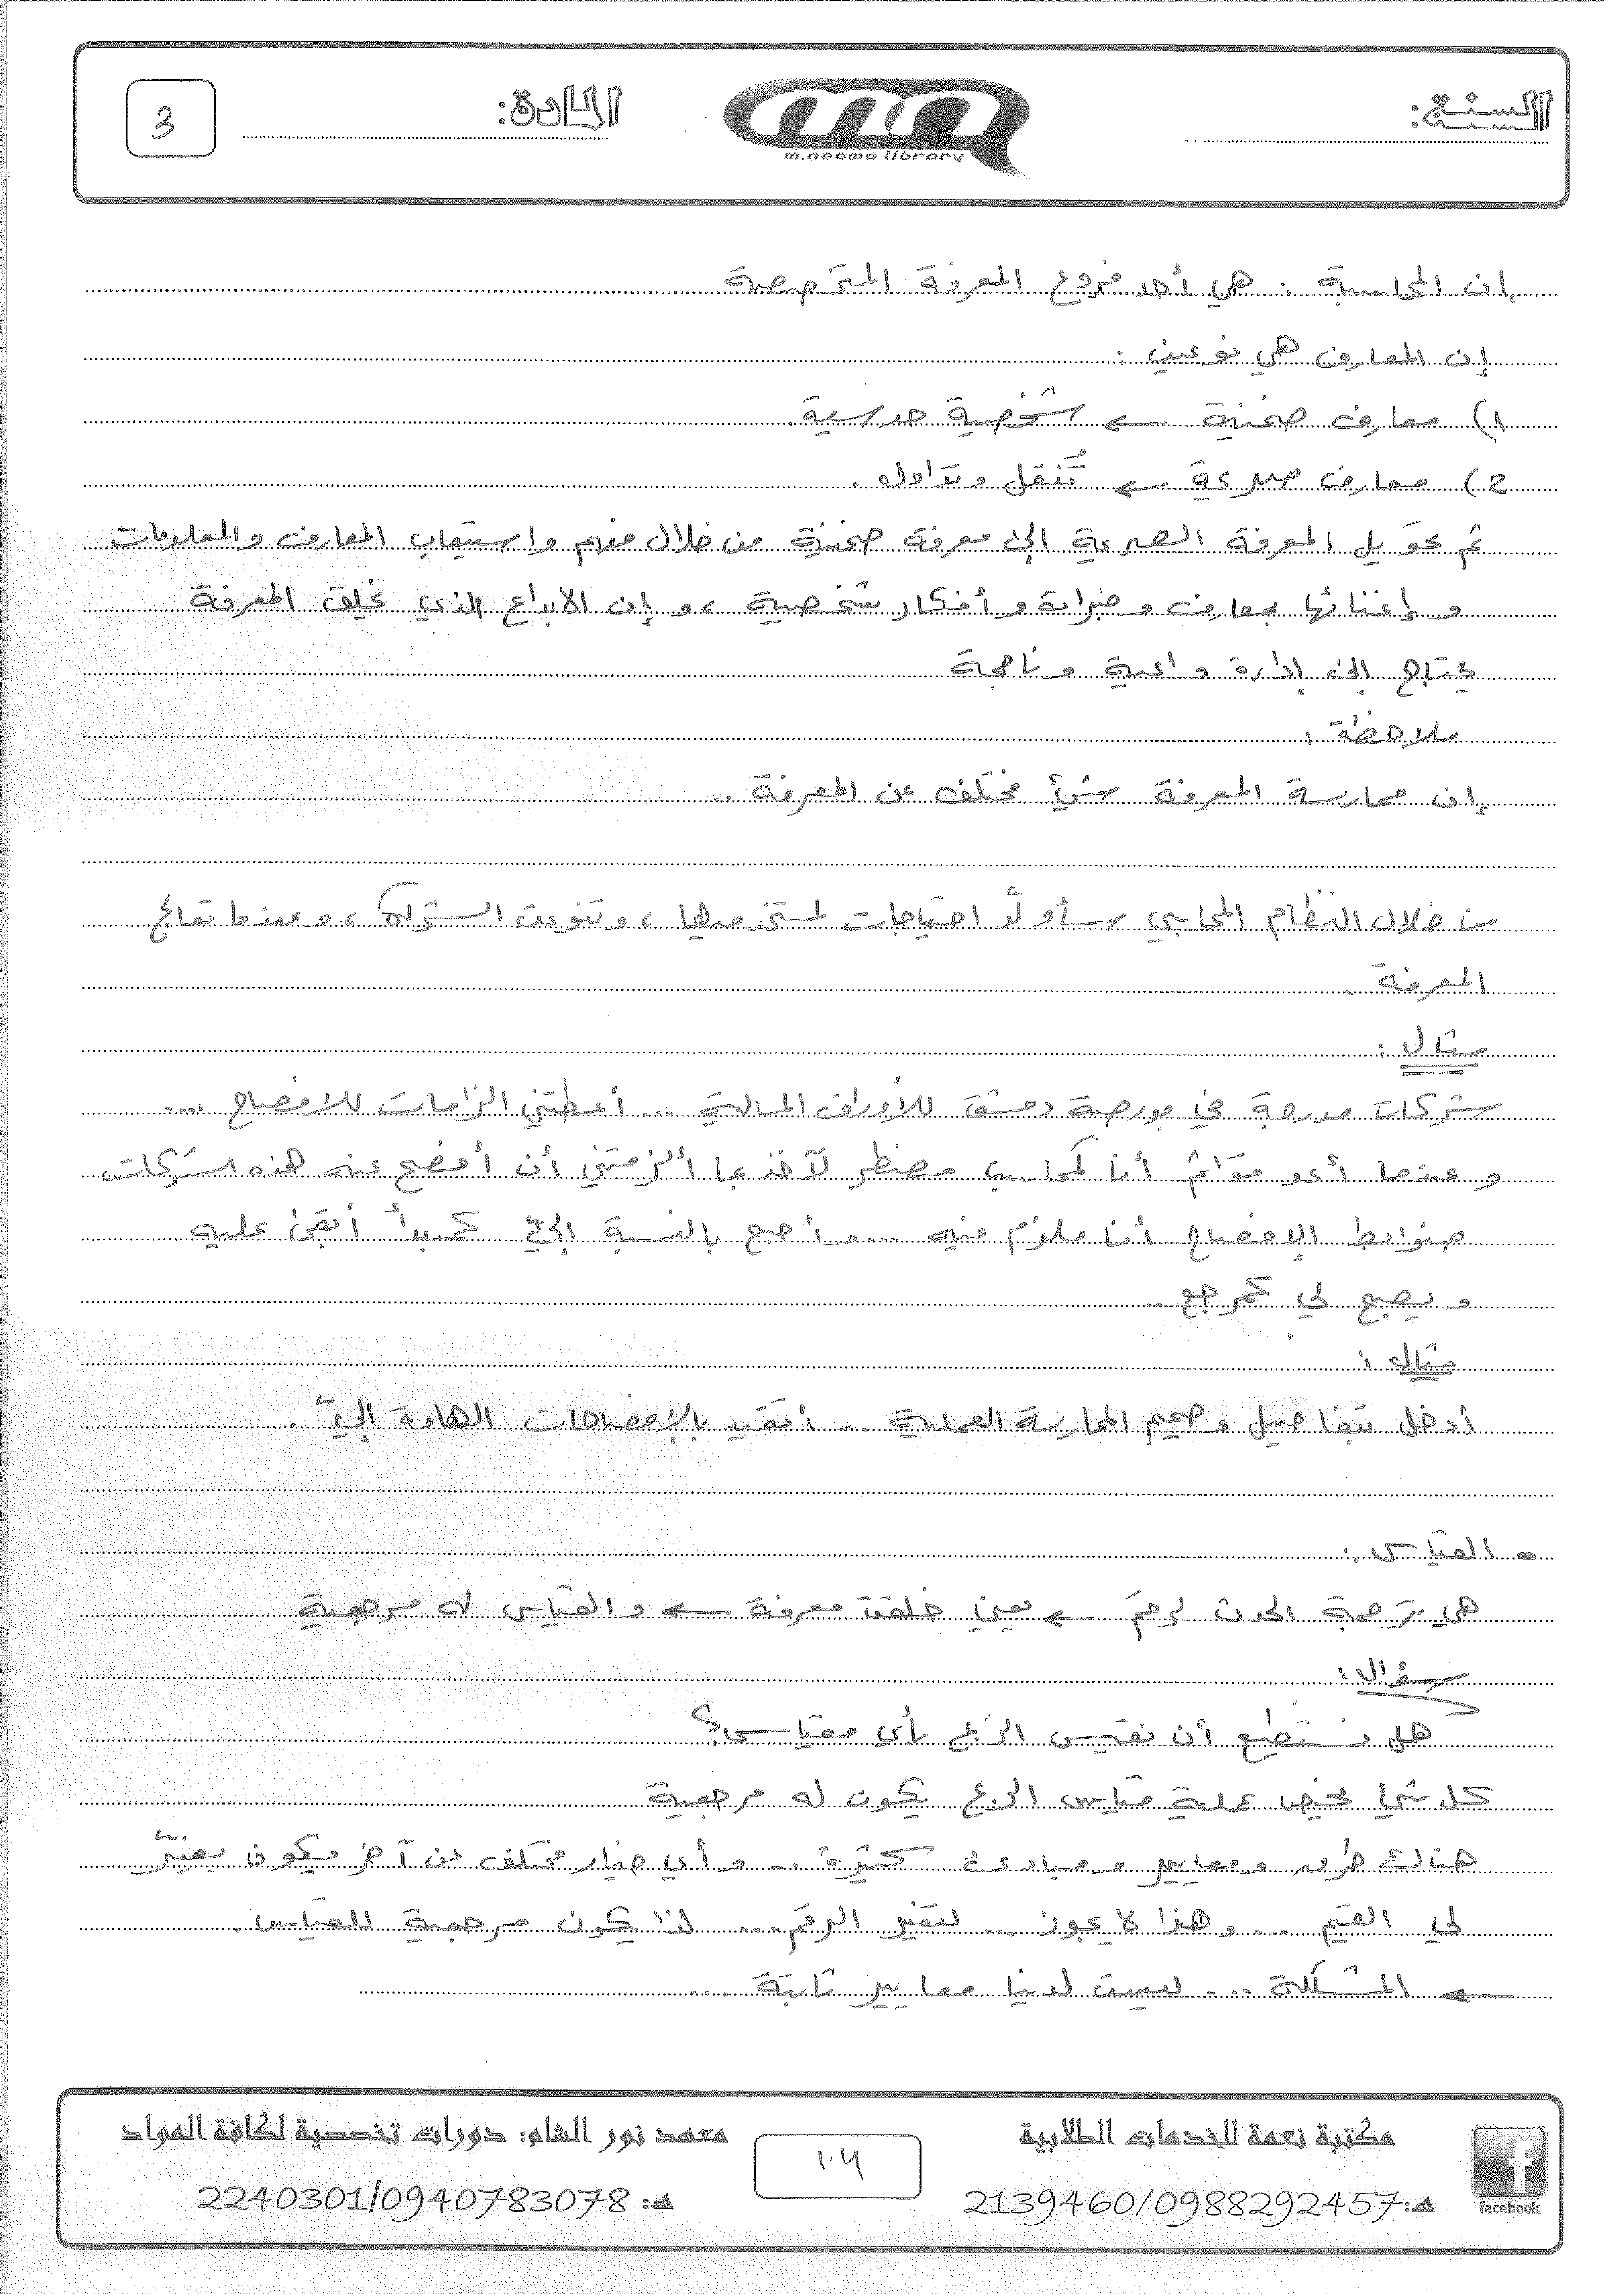 السنة:
m.neama library
المادة:
3
إن المحاسبة : هي أحد فروع المعرفة المتخصصة
إن المعارف هي نوعين :
1) معارف ضمنية ← شخصية حدسية
2) معارف صريحة ← تُنقل وتداول .
ثم تحويل المعرفة الصريحة إلى معرفة ضمنية من خلال فهم واستيعاب المعارف والمعلومات
و إغنائها بمعارف و خبرات و أفكار شخصية ، و إن الابداع الذي يخلق المعرفة
يحتاج إلى إدارة واعية و ناجحة
ملاحظة :
إن ممارسة المعرفة شيئ مختلف عن المعرفة ..
من خلال النظام المحاسبي سأولّد احتياجات لمستخدميها ، و تنوعت الشركة ، و عندما تعالج
المعرفة
مثال :
شركات مدرجة في بورصة دمشق للأوراق المالية ... أعطتني الزامات للافصاح ....
و عندما أعد قوائم أنا كمحاسب مضطر لآخذ بما ألزمتني أن أفصح عنه هذه الشركات
ضوابط الإفصاح أنا ملزم فيه .... و أصبح بالنسبة إليّ كمبدأ أبقى عليه
و يصبح لي كمرجع ..
مثال :
أدخل بتفاصيل و صميم الممارسة العملية ... أتقيد بالإفصاحات الهامة إليّ .
• القياس :
هي ترجمة الحدث لرقم ← يعني خلقت معرفة ← و القياس له مرجعية
سؤال :
هل نستطيع أن نقيس الربح بأي مقياس ؟
كل شيئ يخص عملية قياس الربح يكون له مرجعية
هناك طرق و معايير و مبادئ كثيرة .. و أي خيار مختلف عن آخر يكون يغيّر
لي القيم ... و هذا لا يجوز ... لتغير الرقم ... لذا يكون مرجعية للقياس .
← المشكلة ... ليست لدينا معايير ثابتة ....
مكتبة نعمة للخدمات الطلابية
هـ: 2139460/0988292457
facebook
معهد نور الشام: دورات تخصصية لكافة المواد
هـ: 2240301/0940783078